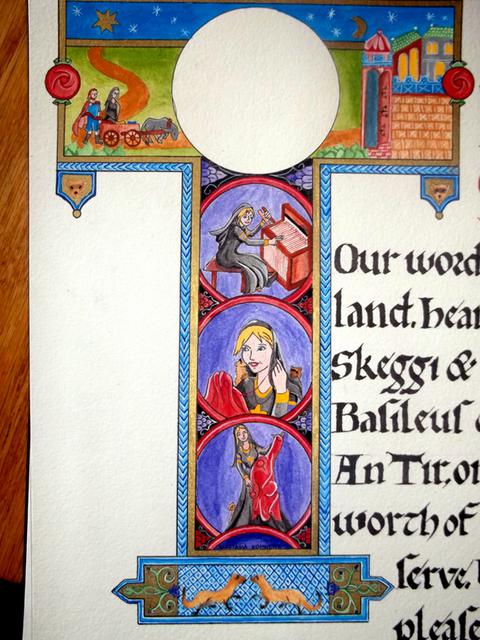 Our word
land. hear
Skeggi &
Baſileuſ
An Tir, or
worth of
ſerve.
pleaſe